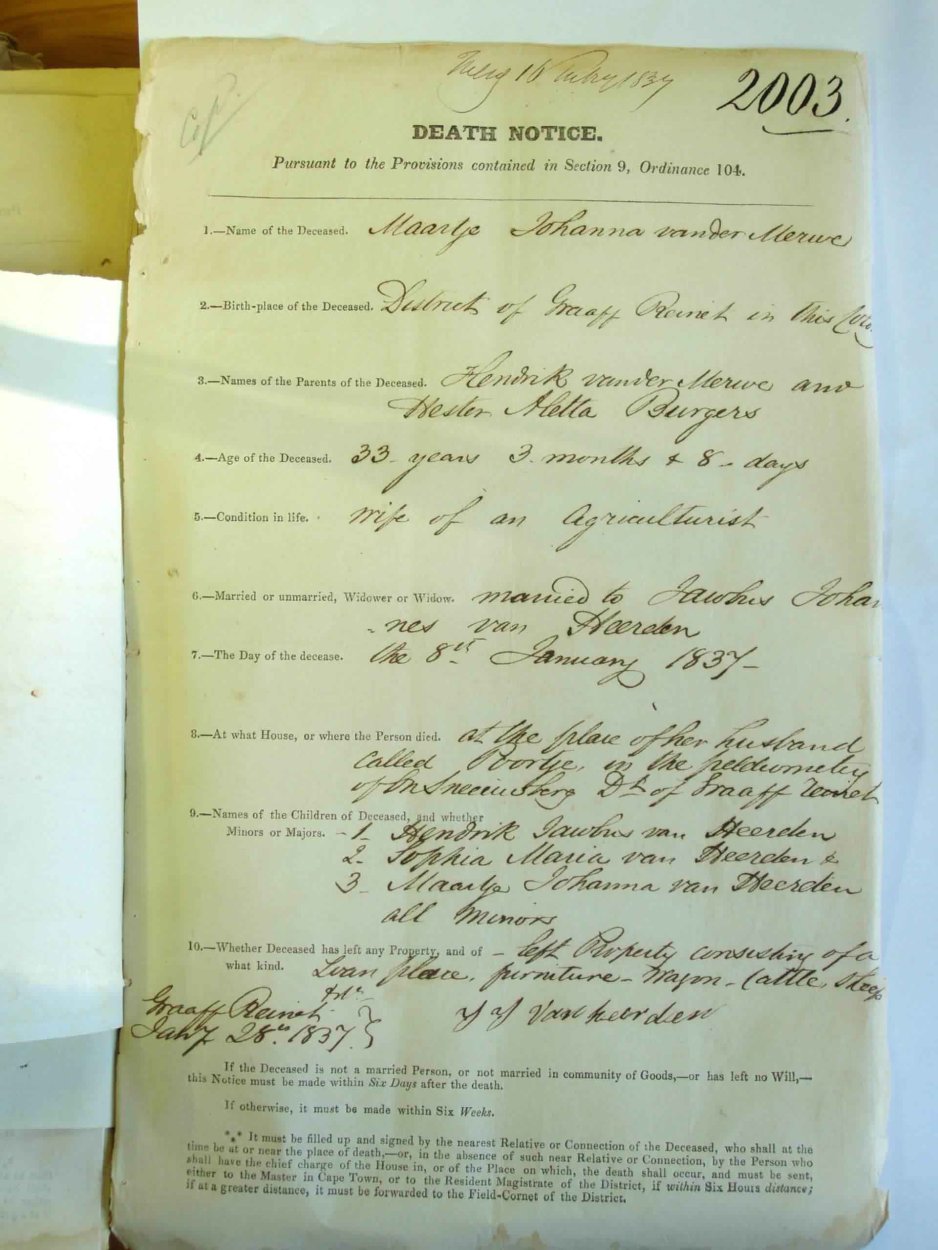 16 1837
2003.
DEATH NOTICE.
Pursuant to the Provisions contained in Section 9, Ordinance 104.
1.—Name of the Deceased. Maartje Johanna vander Merwe
2.—Birth-place of the Deceased. District of Graaff Reinet in this
3.—Names of the Parents of the Deceased. Hendrik vander Merwe and
Hester Aletta Burgers
4.—Age of the Deceased. 33 years 3 months & 8 days
5.—Condition in life. wife of an Agriculturist
6.—Married or unmarried, Widower or Widow. married to Jacobus Johan
nes van Heerden
7.—The Day of the decease. the 8th January 1837
8.—At what House, or where the Person died. at the place of her husband
called Poortje, in the feldcornetcy
of Sneeuwberg Dt of Graaff Reinet
9.—Names of the Children of Deceased, and whether
Minors or Majors. - 1 Hendrik Jacobus van Heerden
2 Sophia Maria van Heerden &
3 Maartje Johanna van Heerden
all Minors
10.—Whether Deceased has left any Property, and of - left Property consisting of a
what kind. Loan place, furniture - Wagon - Cattle, Sheep
Graaff Reinet
Jany 28th 1837. J J Van heerden
If the Deceased is not a married Person, or not married in community of Goods,—or has left no Will,—
this Notice must be made within Six Days after the death.
If otherwise, it must be made within Six Weeks.
*** It must be filled up and signed by the nearest Relative or Connection of the Deceased, who shall at the
time be at or near the place of death,—or, in the absence of such near Relative or Connection, by the Person who
shall have the chief charge of the House in, or of the Place on which, the death shall occur, and must be sent,
either to the Master in Cape Town, or to the Resident Magistrate of the District, if within Six Hours distance;
if at a greater distance, it must be forwarded to the Field-Cornet of the District.